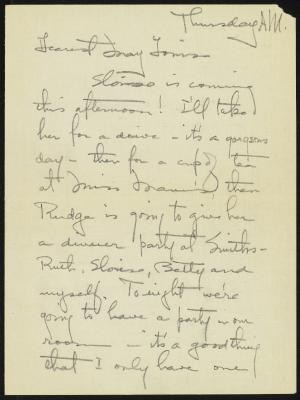 Thursday A.M.
Dearest
is coming
this afternoon! I'll take
her for a drive - it's a gorgeous
day - then for a cup of tea
at Miss then
is going to give her
a dinner party at Smiths -
Ruth, Betty and
myself. To-night we're
going to have a party in our
room - it's a good thing
that I only have one